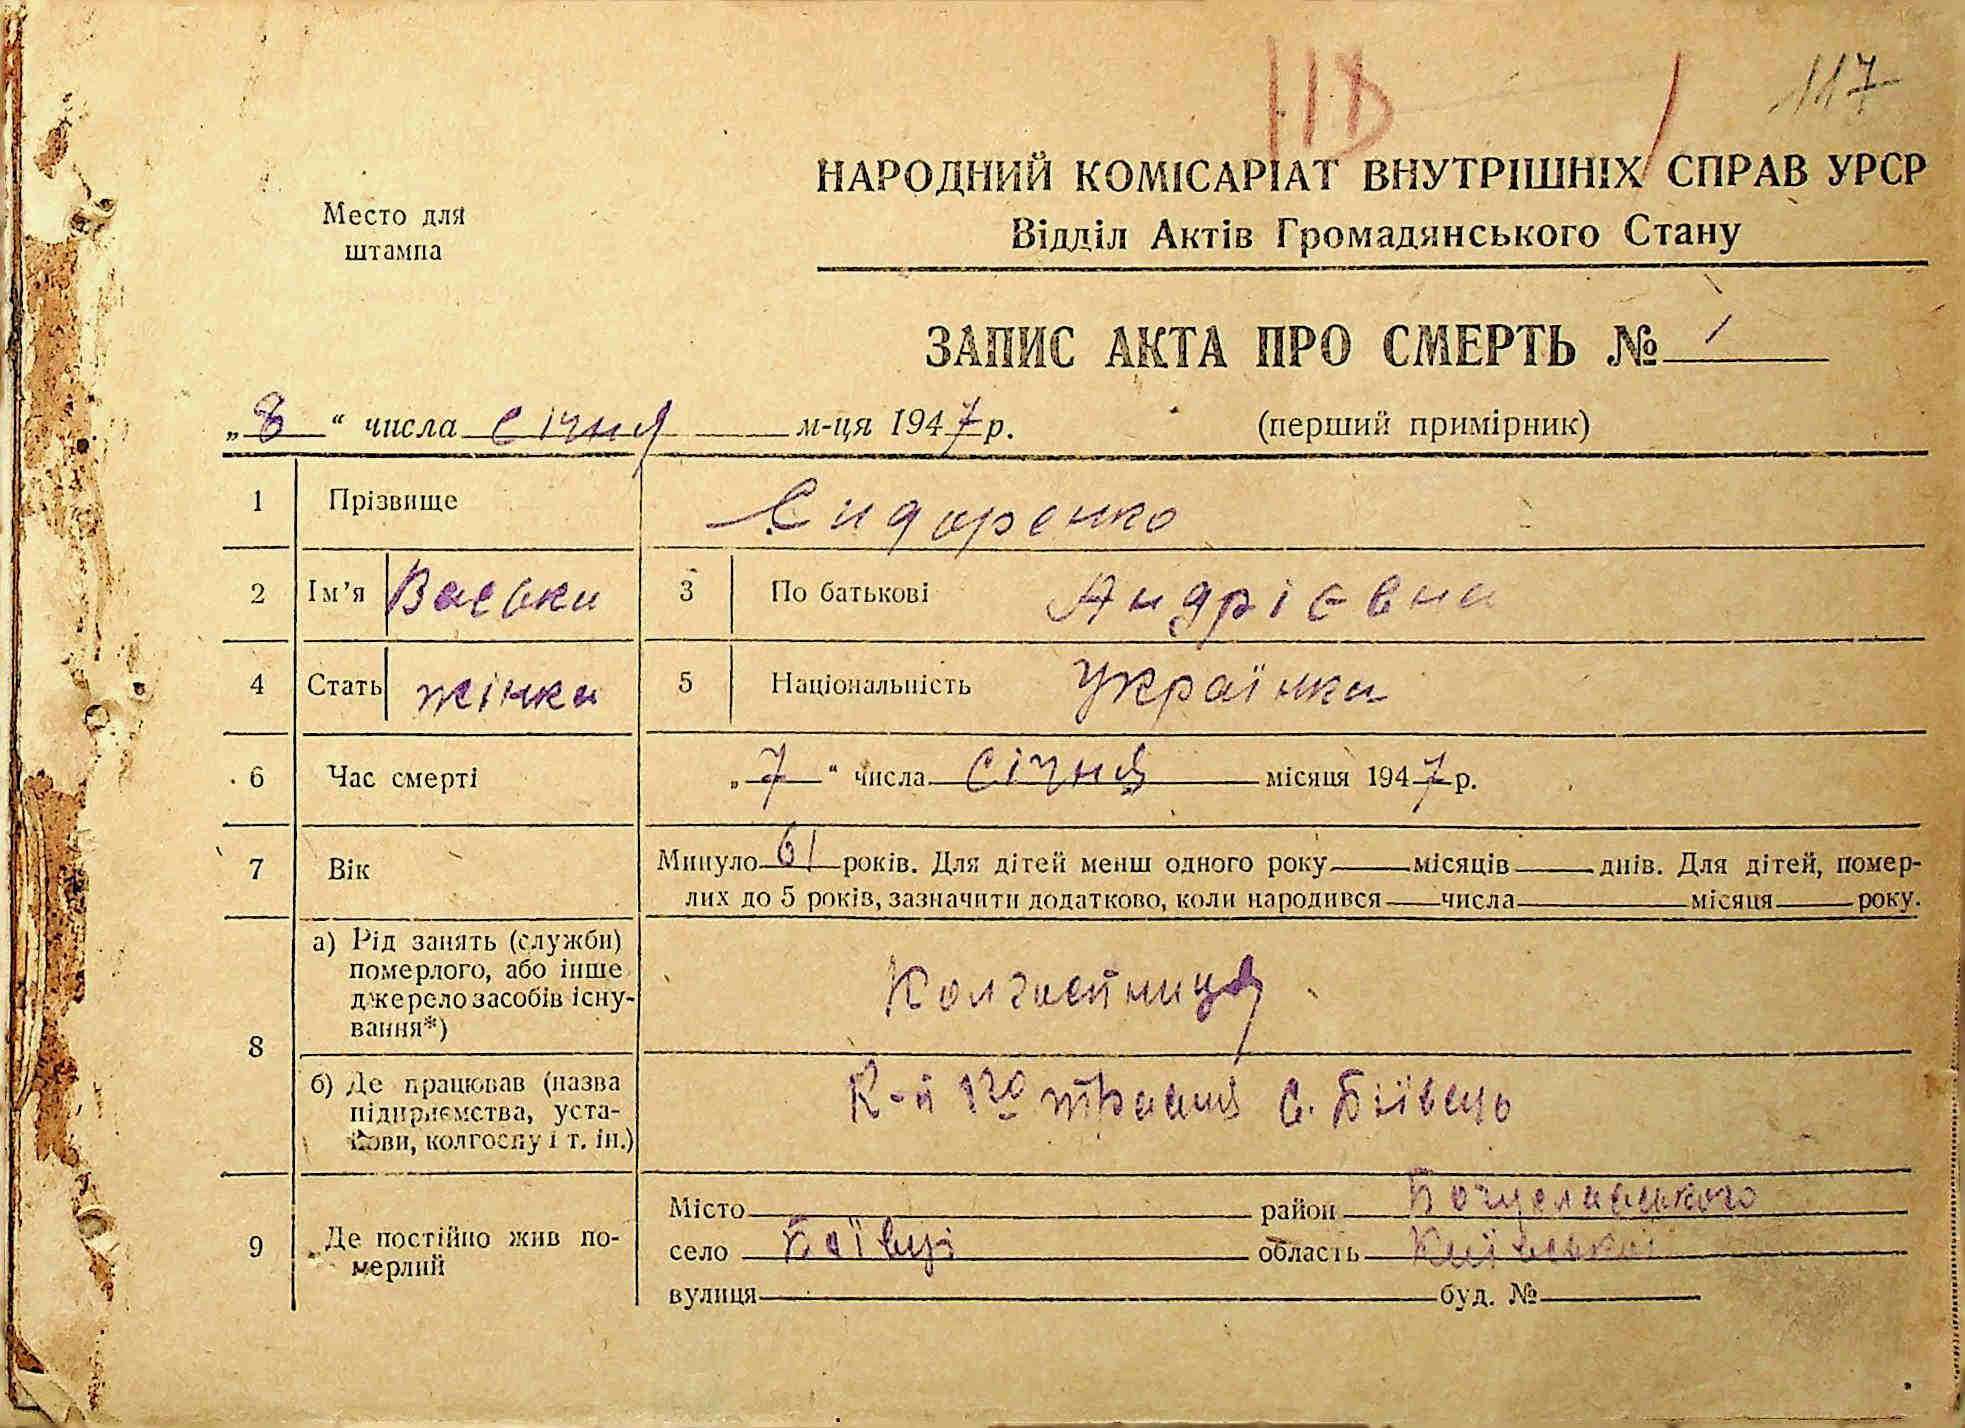 117
Место для
штампа
НАРОДНИЙ КОМІСАРІАТ ВНУТРІШНІХ СПРАВ УРСР
Відділ Актів Громадянського Стану
ЗАПИС АКТА ПРО СМЕРТЬ № 1
„8“ числа січня м-ця 1947 р. (перший примірник)
1 Прізвище Сидоренко
2 Ім'я Васька 3 По батькові Андрієвна
4 Стать жінка 5 Національність Українка
6 Час смерті „7“ числа січня місяця 1947 р.
7 Вік Минуло 61 років. Для дітей менш одного року місяців днів. Для дітей, помер-
лих до 5 років, зазначити додатково, коли народився числа місяця року.
8 а) Рід занять (служби)
померлого, або інше
джерело засобів існу-
вання*) Колгостниця
б) Де працював (назва
підприємства, уста-
нови, колгоспу і т. ін.) К-п 1го травня с. Біївець
9 Де постійно жив по-
мерлий
Місто район Богуславського
село Біївці область Київської
вулиця буд. №